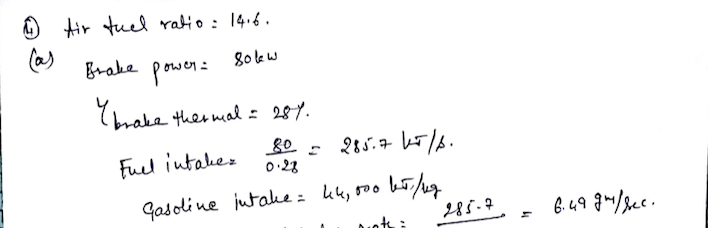 ④ Air fuel ratio = 14.6.
(a) Brake power = 80kw
η brake thermal = 28%.
Fuel intake = 80/0.28 = 285.7 kJ/s.
Gasoline intake = 44,000 kJ/kg
285.7 = 6.49 gm/sec.